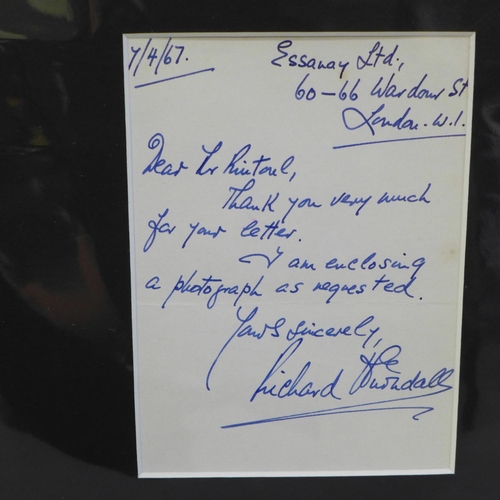 7/4/67.
Essanay Ltd.,
60-66 Wardour St
London. W.1.
Dear Mr Rintoul,
Thank you very much
for your letter.
I am enclosing
a photograph as requested.
Yours sincerely,
Richard Hurndall